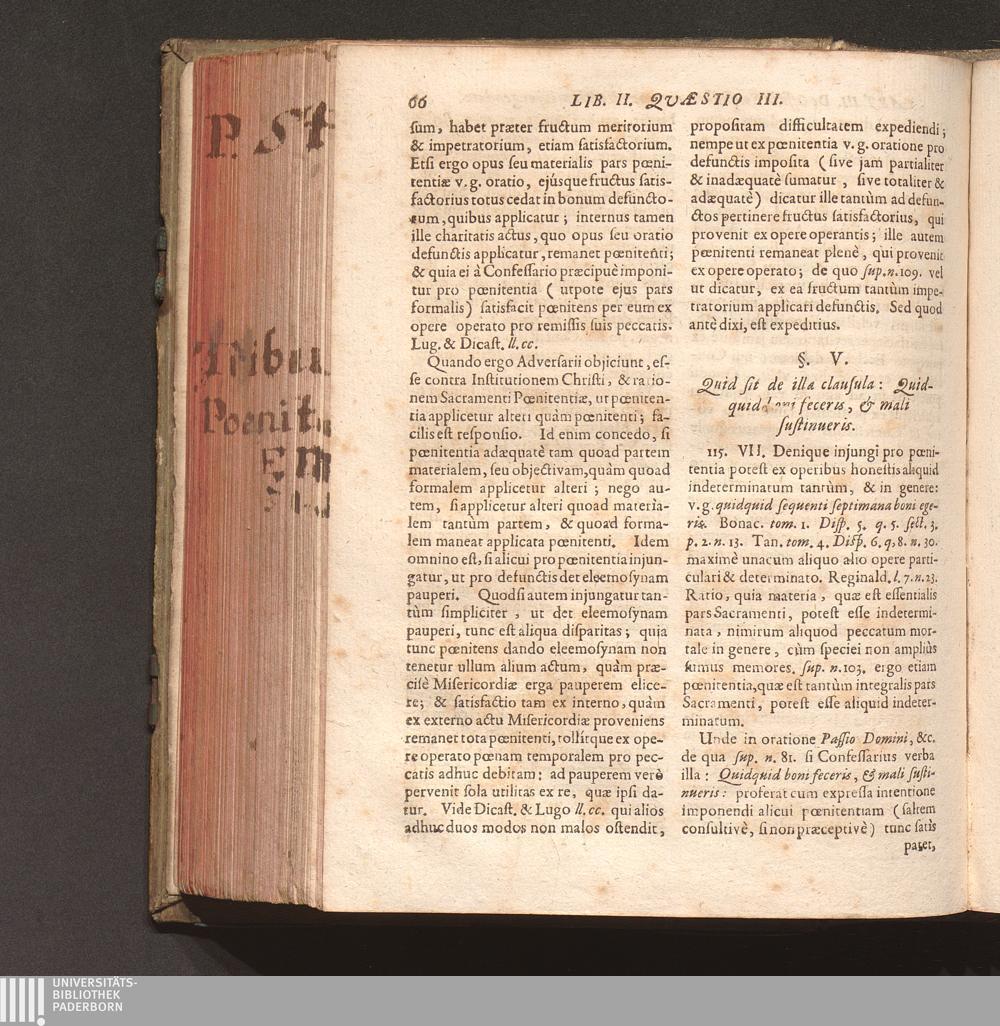 P. St
Tribu
Poenit
Em
66
LIB. II. QVÆSTIO III.
ſum, habet præter fructum meritorium
& impetratorium, etiam ſatisfactorium.
Etſi ergo opus ſeu materialis pars pœni-
tentiæ v.g. oratio, ejúsque fructus ſatis-
factorius totus cedat in bonum defuncto-
rum, quibus applicatur; internus tamen
ille charitatis actus, quo opus ſeu oratio
defunctis applicatur, remanet pœnitenti;
& quia ei à Confeſſario præcipuè imponi-
tur pro pœnitentia ( utpote ejus pars
formalis) ſatisfacit pœnitens per eum ex
opere operato pro remiſſis ſuis peccatis.
Lug. & Dicaſt. ll. cc.
Quando ergo Adverſarii objiciunt, eſ-
ſe contra Inſtitutionem Chriſti, & ratio-
nem Sacramenti Pœnitentiæ, ut pœniten-
tia applicetur alteri quàm pœnitenti; fa-
cilis eſt reſponſio. Id enim concedo, ſi
pœnitentia adæquatè tam quoad partem
materialem, ſeu objectivam, quàm quoad
formalem applicetur alteri; nego au-
tem, ſi applicetur alteri quoad materia-
lem tantùm partem, & quoad forma-
lem maneat applicata pœnitenti. Idem
omnino eſt, ſi alicui pro pœnitentia injun-
gatur, ut pro defunctis det eleemoſynam
pauperi. Quodſi autem injungatur tan-
tùm ſimpliciter, ut det eleemoſynam
pauperi, tunc eſt aliqua diſparitas; quia
tunc pœnitens dando eleemoſynam non
tenetur ullum alium actum, quàm præ-
ciſè Miſericordiæ erga pauperem elice-
re; & ſatisfactio tam ex interno, quàm
ex externo actu Miſericordiæ proveniens
remanet tota pœnitenti, tollitque ex ope-
re operato pœnam temporalem pro pec-
catis adhuc debitam: ad pauperem verò
pervenit ſola utilitas ex re, quæ ipſi da-
tur. Vide Dicaſt. & Lugo ll. cc. qui alios
adhuc duos modos non malos oſtendit,
propoſitam difficultatem expediendi;
nempe ut ex pœnitentia v.g. oratione pro
defunctis impoſita (ſive jam partialiter
& inadæquatè ſumatur, ſive totaliter &
adæquatè) dicatur ille tantùm ad defun-
ctos pertinere fructus ſatisfactorius, qui
provenit ex opere operantis; ille autem
pœnitenti remaneat plenè, qui provenit
ex opere operato; de quo ſup. n. 109. vel
ut dicatur, ex ea fructum tantùm impe-
tratorium applicari defunctis. Sed quod
antè dixi, eſt expeditius.
§. V.
Quid ſit de illa clauſula: Quid-
quid boni feceris, & mali
ſuſtinueris.
115. VII. Denique injungi pro pœni-
tentia poteſt ex operibus honeſtis aliquid
indeterminatum tantùm, & in genere:
v.g. quidquid ſequenti ſeptimana boni ege-
ris. Bonac. tom. 1. Diſp. 5. q. 5. ſect. 3.
p. 2. n. 13. Tan. tom. 4. Diſp. 6. q. 8. n. 30.
maximè unacum aliquo alio opere parti-
culari & determinato. Reginald. l. 7. n. 23.
Ratio, quia materia, quæ eſt eſſentialis
pars Sacramenti, poteſt eſſe indetermi-
nata, nimirum aliquod peccatum mor-
tale in genere, cùm ſpeciei non ampliùs
ſumus memores. ſup. n. 103. ergo etiam
pœnitentia, quæ eſt tantùm integralis pars
Sacramenti, poteſt eſſe aliquid indeter-
minatum.
Unde in oratione Paſſio Domini, &c.
de qua ſup. n. 81. ſi Confeſſarius verba
illa: Quidquid boni feceris, & mali ſuſti-
nueris: proferat cum expreſſa intentione
imponendi alicui pœnitentiam (ſaltem
conſultivè, ſi non præceptivè) tunc ſatis
patet,
UNIVERSITÄTS-
BIBLIOTHEK
PADERBORN